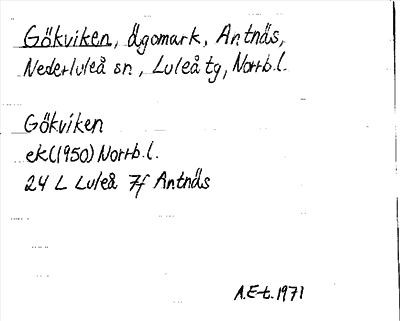 Gökviken, ägomark, Antnäs,
Nederluleå sn, Luleå tg, Norrb.l.
Gökviken
ek(1950) Norrb.l.
24 L Luleå 7f Antnäs
A.E-t. 1971